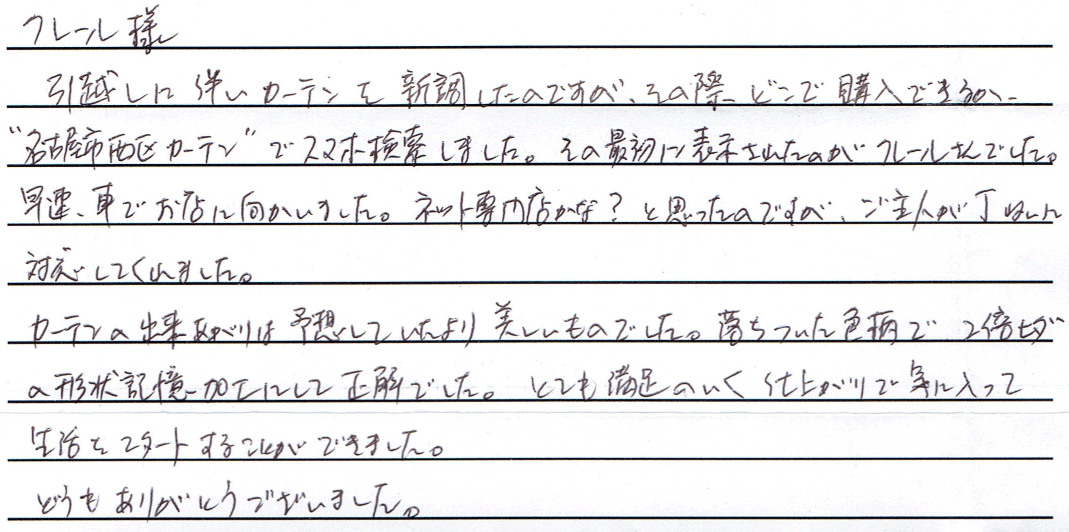 フレール様
引越しに伴いカーテンを新調したのですが、その際、どこで購入できるか、
"名古屋市西区カーテン"でスマホ検索しました。その最初に表示されたのがフレールさんでした。
早速、車でお店に向かいました。ネット専門店かな？と思ったのですが、ご主人が丁ねいに
対応してくれました。
カーテンの出来あがりは予想していたより美しいものでした。落ちついた色柄で2倍ヒダ
の形状記憶加工にして正解でした。とても満足のいく仕上がりで気に入って
生活をスタートすることができました。
どうもありがとうございました。